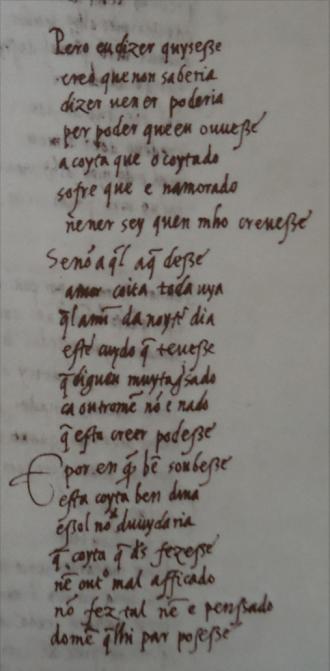 Pero eu dizer quysesse
creo que non saberia
dizer nen er poderia
per poder que eu ouuesse
a coyta que o coytado
sofre que e namorado
nen er sey quen mho creuesse
Senō a q̄l a q̄ desse
amor coita toda uya
q̄l a mī da noyt̄ dia
este cuydo q̄ teuesse
q̄ diguen muyt aguysado
ca outr omē nō e nado
q̄ esta creer podesse
E por en q̄ bē soubesse
esta coyta ben diria
essol nō duuydaria
q̄ coyta q̄ ds fezesse
nē outo mal afficado
nō fez tal nē e penssado
domē q̄ lhi par posesse